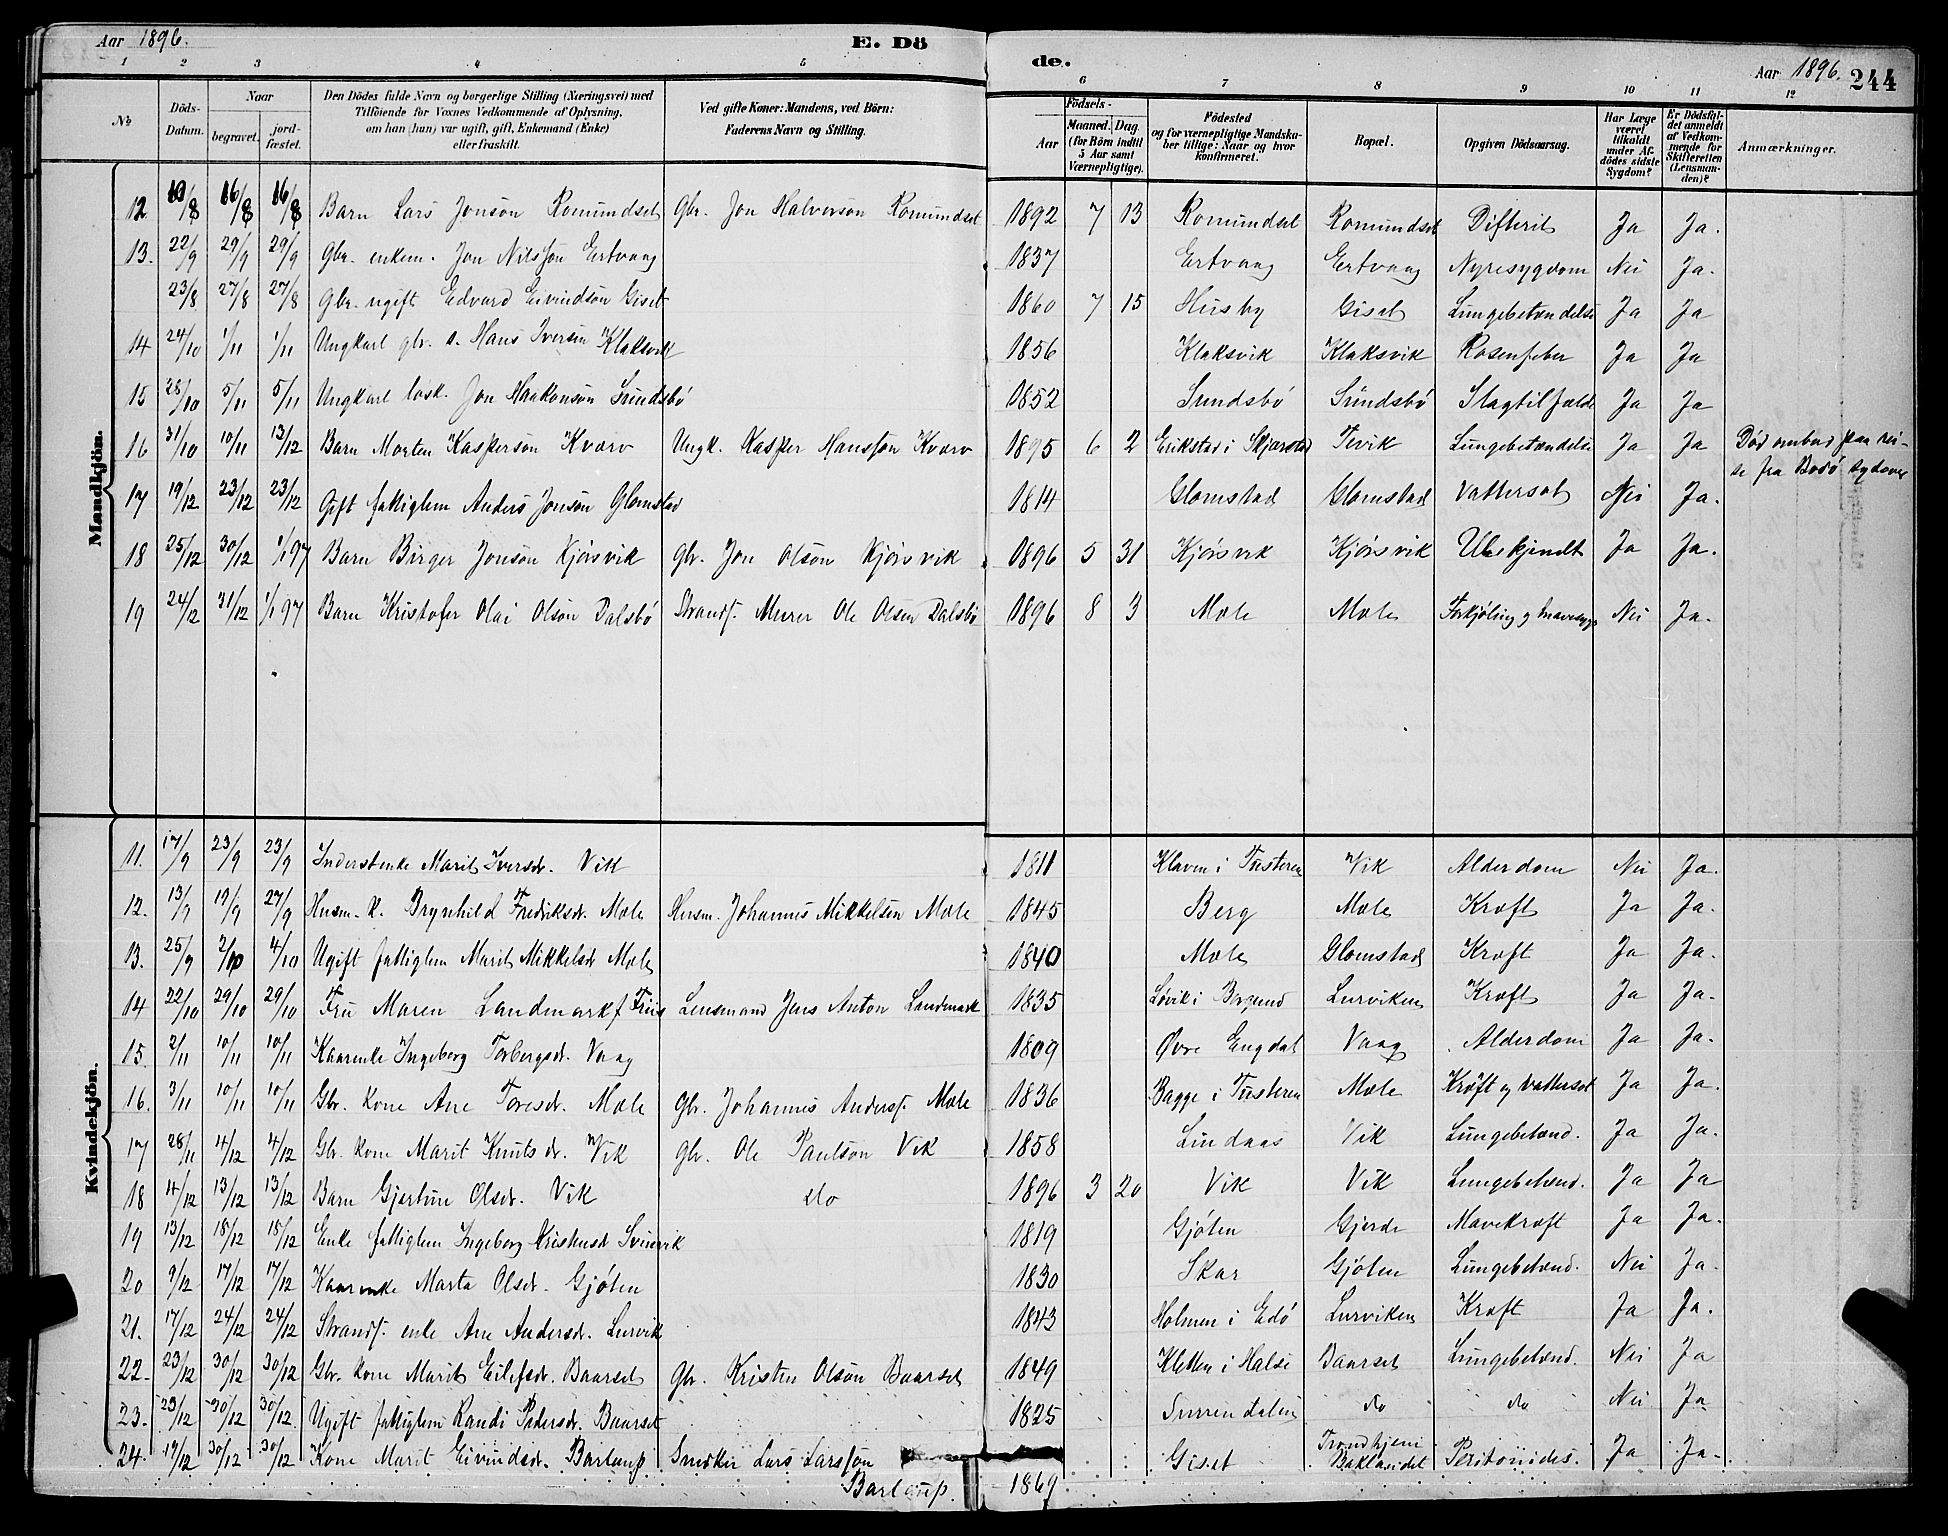 Aar 1896.
E. Dö
de.
Aar 1896.
244
1 2 3 4 5 6 7 8 9 10 11 12
№
Döds-Datum.
Naar
begravet.
jord-fæstet.
Den Dödes fulde Navn og borgerlige Stilling (Næringsvei) med
Tilföiende for Voxnes Vedkommende af Oplysning,
om han (hun) var ugift, gift, Enkemand (Enke)
eller fraskilt.
Ved gifte Koner: Mandens, ved Börn:
Faderens Navn og Stilling.
Födsels-
Aar
Maaned. Dag
(for Börn indtil
5 Aar samt
Værnepligtige).
Födested
og for værnepligtige Mandska-
ber tillige: Naar og hvor
konfirmeret.
Bopæl.
Opgiven Dödsaarsag.
Har Læge
været
tilkaldt
under Af-
dödes sidste
Sygdom?
Er Dödsfal-
det anmeldt
af Vedkom-
mende for
Skifteretten
(Lensman-
den)?
Anmærkninger.
Mandkjön.
12 10/8 16/8 16/8 Barn Lars Jonsön Romundset Gbr. Jon Halvorsön Romundset 1892 7 13 Romundset Romundset Difterit Ja Ja.
13. 22/9 29/9 29/9 Gbr. enkem. Jon Nilssön Ertvaag 1837 Ertvaag Ertvaag Nyresygdom Nei Ja.
23/8 27/8 27/8 Gbr. ugift Edvard Eivindsön Giset 1860 7 15 Husby Giset Lungebetændelse Ja Ja
14 24/10 1/11 1/11 Ungkarl gbr. s. Hans Iversen Klaksvik 1856 Klaksvik Klaksvik Rosenfeber Ja Ja
15 28/10 5/11 5/11 Ungkarl losk. Jon Haakonsön Sundsbö 1852 Sundsbö Sundsbö Slagtilfælde Ja Ja
16 31/10 10/11 13/12 Barn Morten Kaspersön Kværv Ungk. Kasper Hanssön Kværv 1895 6 2 Erikstad i Skjærstad Tevik Lungebetændelse Ja Ja Död ombord paa rei-
se fra Bodö sydover
17 19/12 23/12 23/12 Gift fattiglem Anders Jonsön Glomstad 1814 Glomstad Glomstad Vattersot Nei Ja.
18 25/12 30/12 1/1 97 Barn Birger Jonsön Kjörsvik Gbr. Jon Olsön Kjörsvik 1896 5 31 Kjörsvik Kjörsvik Ubekjendt Ja Ja.
19 24/12 31/12 1/1 97 Barn Kristofer Olai Olsön Dalsbö Strands. Murer Ole Olsen Dalsbö 1896 8 3 Mæle Mæle Forkjöling og mavesyge Nei Ja.
Kvindekjön.
11. 17/9 23/9 23/9 Inderstenke Marit Iversdr. Vik 1811 Klaven i Tusteren Vik Alderdom Nei Ja.
12. 13/9 19/9 27/9 Husm. k. Brynhild Fredriksdr. Mæle Husm. Johannes Mikkelsen Mæle 1845 Berg Mæle Kræft Ja Ja.
13. 25/9 2/10 4/10 Ugift fattiglem Marit Mikkelsdr Mæle 1840 Mæle Glomstad Kræft Ja Ja.
14 22/10 29/10 29/10 Fru Maren Landmark f. Friis Lensmand Jens Anton Landmark 1835 Lövik i Borgund Lurviken Kræft Ja Ja.
15. 2/11 10/11 10/11 Kaarenke Ingeborg Torbergsdr. Vaag 1809 Øvre Engdal Vaag Alderdom Ja Ja.
16. 3/11 10/11 10/11 Gbr. kone Ane Toresdr. Mæle Gbr. Johannes Anders. Mæle 1836 Bagge i Tusteren Mæle Kræft og Vattersot Ja Ja.
17 28/11 4/12 4/12 Gbr. kone Marit Knutsdr. Vik Gbr. Ole Paulsön Vik 1858 Lindaas Vik Lungebetænd. Ja Ja.
18 4/12 13/12 13/12 Barn Gjertine Olsdr. Vik do 1896 3 20 Vik Vik Lungebetænd. Ja Ja
19 13/12 18/12 18/12 Enke fattiglem Ingeborg Kristensdr Svinvik 1819 Gjöten Gjerde Mavekræft Ja Ja.
20 9/12 17/12 17/12 Kaarenke Marta Olsdr. Gjöten 1830 Skar Gjöten Lungebetænd. Nei Ja.
21. 17/12 24/12 24/12 Strands. enke Ane Andersdr. Lurvik 1843 Holmen i Edö Lurviken Kræft Ja Ja.
22. 23/12 30/12 30/12 Gbr. kone Marit Eilefsdr. Baarset Gbr. Kristen Olsön Baarset 1849 Kletten i Halse Baarset Lungebetænd. Nei Ja
23. 23/12 30/12 30/12. Ugift fattiglem Randi Pedersdr. Baarset 1825 Surendalen do do Nei Ja
24. 17/12 30/12 30/12 Kone Marit Eivindsdr. Bartaup Snedker Lars Larssön
Bartaup. 1869 Giset Trondhjem
Baklandet Peritonides. Ja Ja.